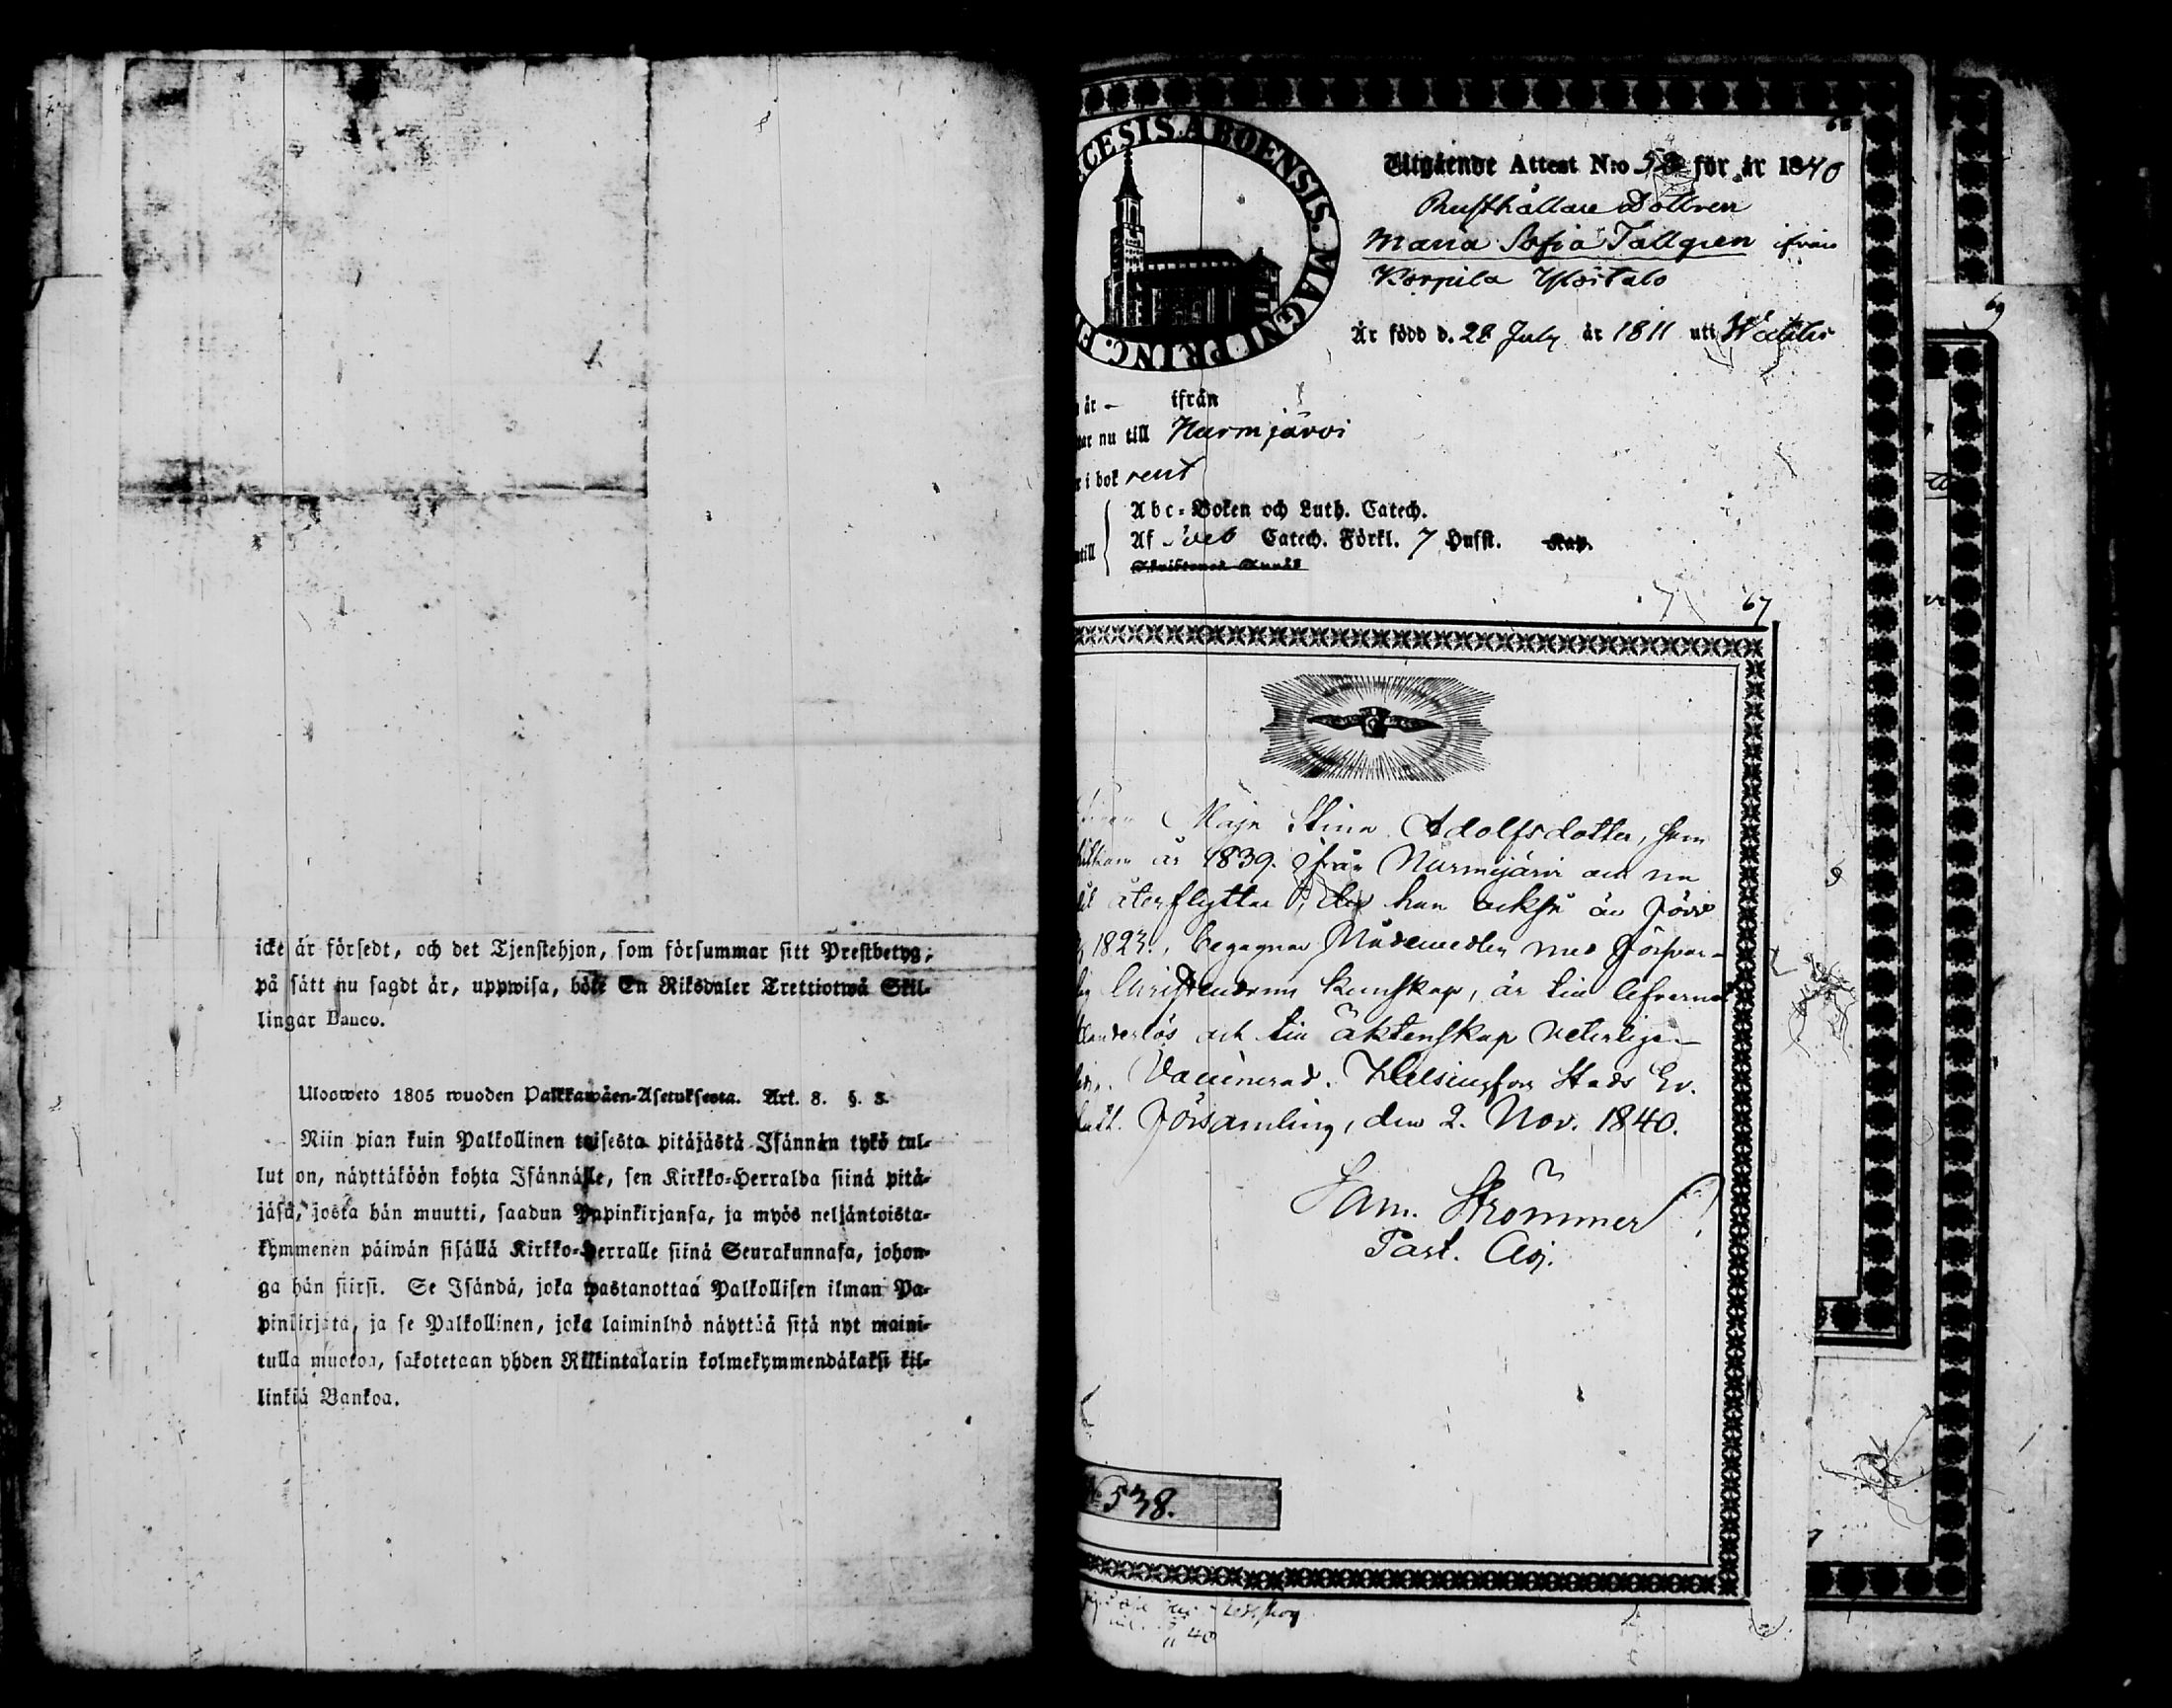 icke är försedt, och det Tjenstehjon, som försummar sitt Prestbetyg,
på sätt nu sagdt är, uppwisa, böte En Riksdaler Trettiotwå Skil-
lingar Banco.
Ulosweto 1805 wuoden Palkkawäen-Asetuksesta. Art. 8. §. 3.
Niin pian kuin Palkollinen toisesta pitäjästä Isännän tykö tul-
lut on, näyttäköön kohta Isännälle, sen Kirkko-Herralda siinä pitä-
jäsä, josta hän muutti, saadun Papinkirjansa, ja myös neljäntoista-
kymmenen päiwän sisällä Kirkko-Herralle siinä Seurakunnasa, johon-
ga hän siirsi. Se Isändä, joka wastanottaa Palkollisen ilman Pa-
pinkirjata, ja se Palkollinen, joka laiminlyö näyttää sitä nyt maini-
tulla muotoa, sakotetaan yhden Riikintalarin kolmekymmendäkaksi kil-
linkiä Bankoa.
68
CESIS ABOENSIS. MAGNI PRINC.
Utgående Attest N:o 58 för år 1840
Rusthållare Dottren
Maria Sofia Tallgren ifrån
Korpila
Är född d. 28 July år 1811 uti
år – ifrån
nu till Nurmjärvi
i bok rent
Abc-Boken och Luth. Catech.
Af Sveb Catech. Förkl. 7 Hufst. Kap.
till
67
69
Maja Stina Adolfsdotter, som
år 1839 ifrån Nurmijärvi och nu
återflyttar, der hon också är född
1823, begagnar Nådemedlen med försvar-
lig Christendoms kunskap, är till lefvernet
klanderlös och till äktenskap veterligen
Vaccinerad. Helsingfors Stads Ev.
Luth. Församling, den 2. Nov. 1840.
Sam. Strömmer
Past. Adj.
No 538.